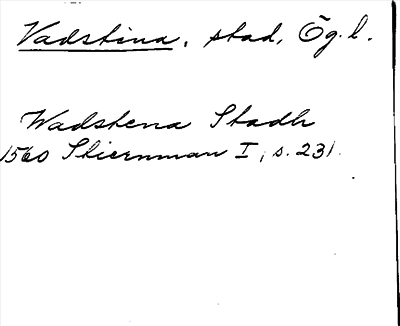 Vadstina, stad, Ög. l.
Wadstena Stadh
1560 Stiernman I, s. 231.